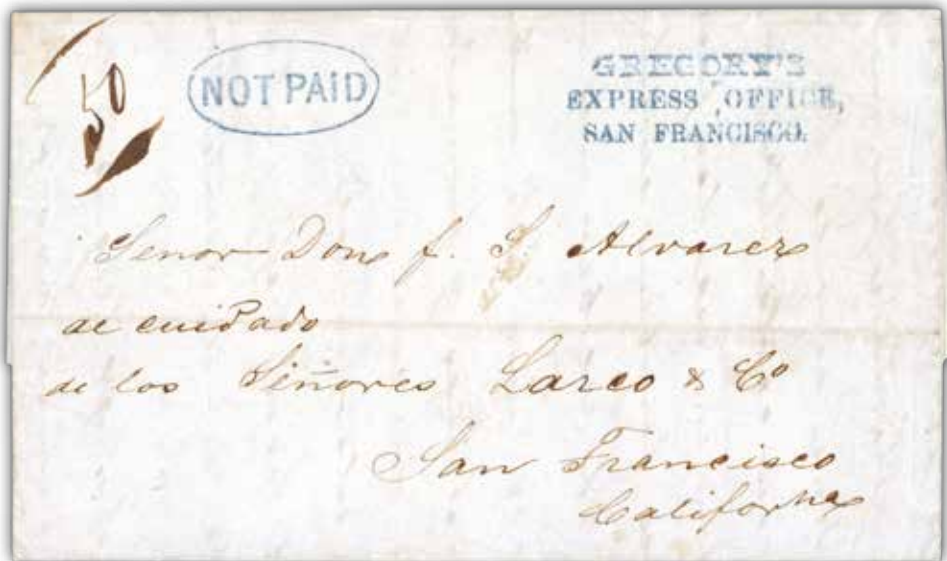 50
NOT PAID
GREGORY'S
EXPRESS OFFICE,
SAN FRANCISCO.
Senor Don f. S. Alvarez
al cuidado
de los Siñores Larco & Co
San Francisco
California